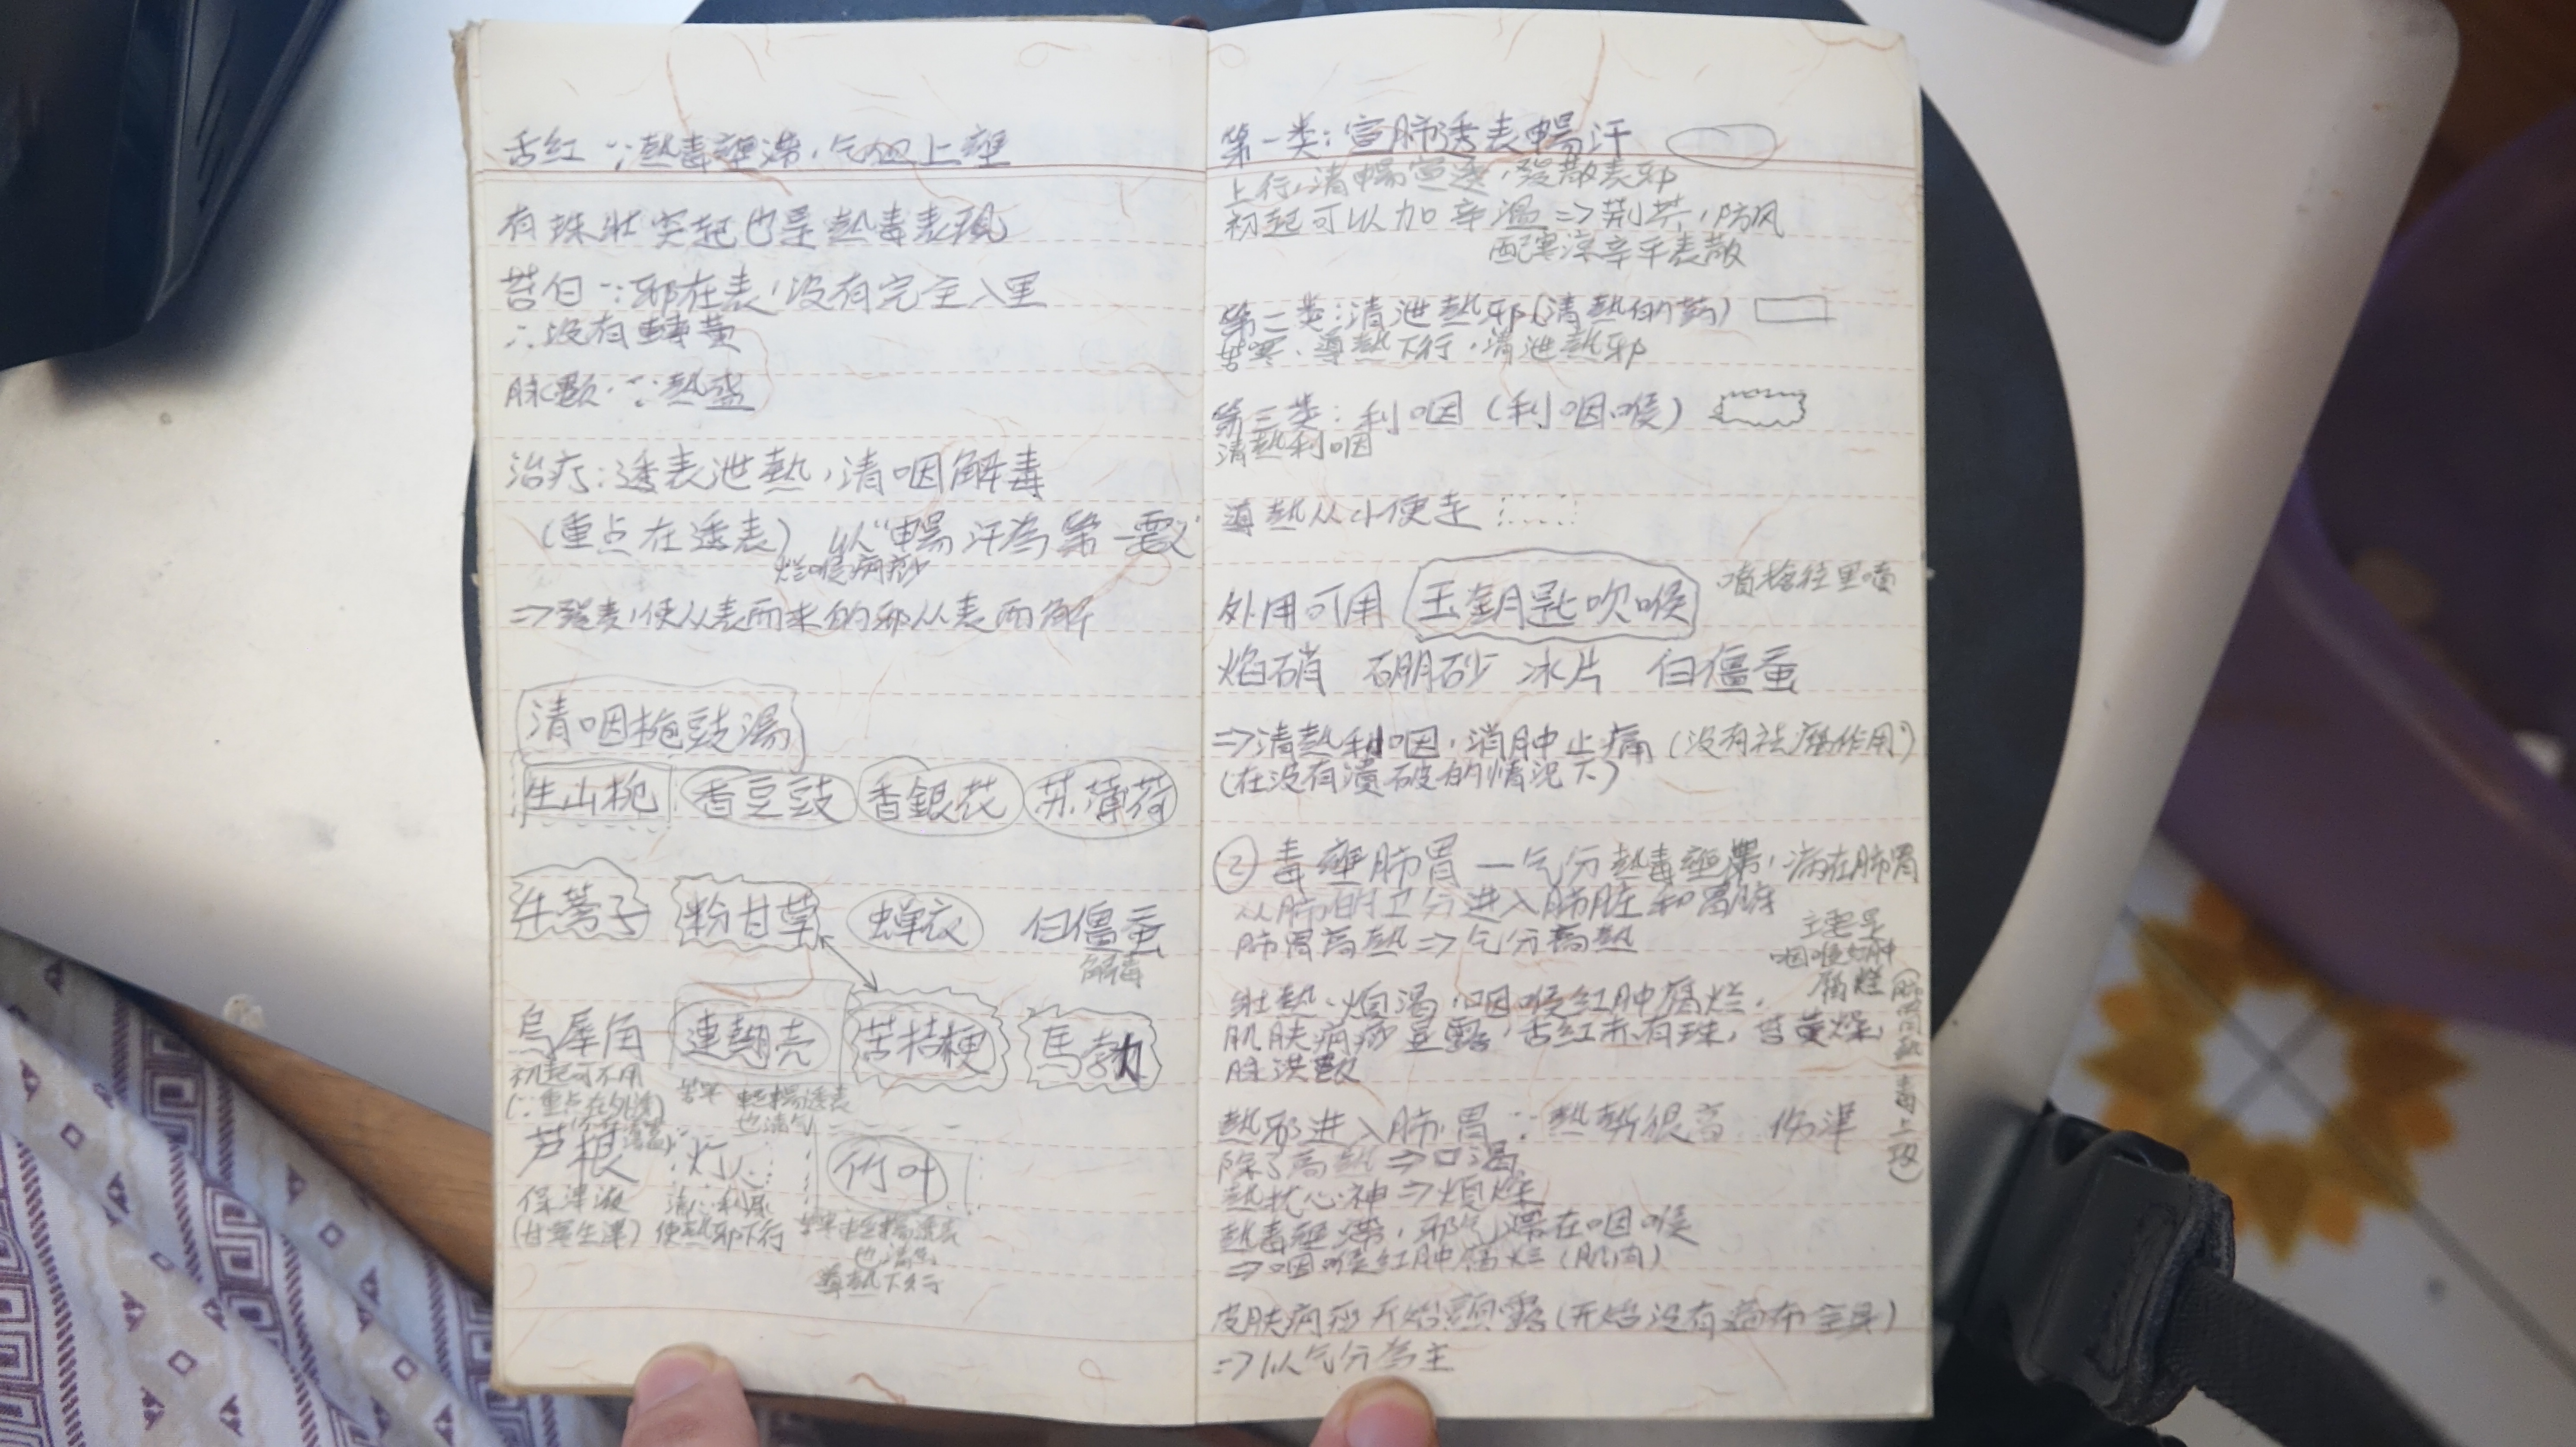 舌红 ∵熱毒壅滞，气血上壅
有珠状突起也是熱毒表现
苔白∵邪在表，没有完全入里
∴没有轉黄
脉數∵熱盛
治疗：透表泄熱，清咽解毒
（重点在透表） 以“暢汗為第一要义”
烂喉痧
⇒發表，使从表而来的邪从表而解
清咽栀豉湯
生山栀 香豆豉 香銀花 苏薄荷
牛蒡子 粉甘草 蝉衣 白僵蚕
解毒
烏犀角 連翹壳 苦桔梗 馬勃
初起可不用
(∵重点在外透)
苦寒 輕揚透表
也清气
芦根 灯心 竹叶
保津液
(甘寒生津)
清心利尿
使熱邪下行
苦寒輕揚透表
也清气
導熱下行
第一类：宣肺透表暢汗
上行，清暢宣透，發散表邪
初起可以加辛温⇒荊芥，防风
配寒凉辛平表散
第二类：清泄熱邪（清熱的药）
苦寒，導熱下行，清泄熱邪
第三类：利咽（利咽喉）
清熱利咽
導熱从小便走
外用可用 玉鑰匙吹喉 喷槍往里喷
焰硝 硼砂 冰片 白僵蚕
⇒清熱利咽，消肿止痛（没有祛腐作用）
（在没有潰破的情况下）
② 毒壅肺胃—气分熱毒壅滞，病在肺胃
从肺的卫分进入肺脏和胃腑
肺胃高熱⇒气分高熱
主要是
咽喉红肿
腐烂
壮熱，烦渴，咽喉红肿腐烂，
肌肤痧疹显露，舌红赤有珠，苔黄燥，
脉洪數
熱邪进入肺胃∵熱势很高 伤津
除了高熱⇒口渴
熱扰心神⇒烦燥
熱毒壅滞，邪气滞在咽喉
⇒咽喉红肿腐烂（肌肉）
毒上攻）
皮肤痧疹开始顯露（开始没有遍布全身）
⇒以气分為主